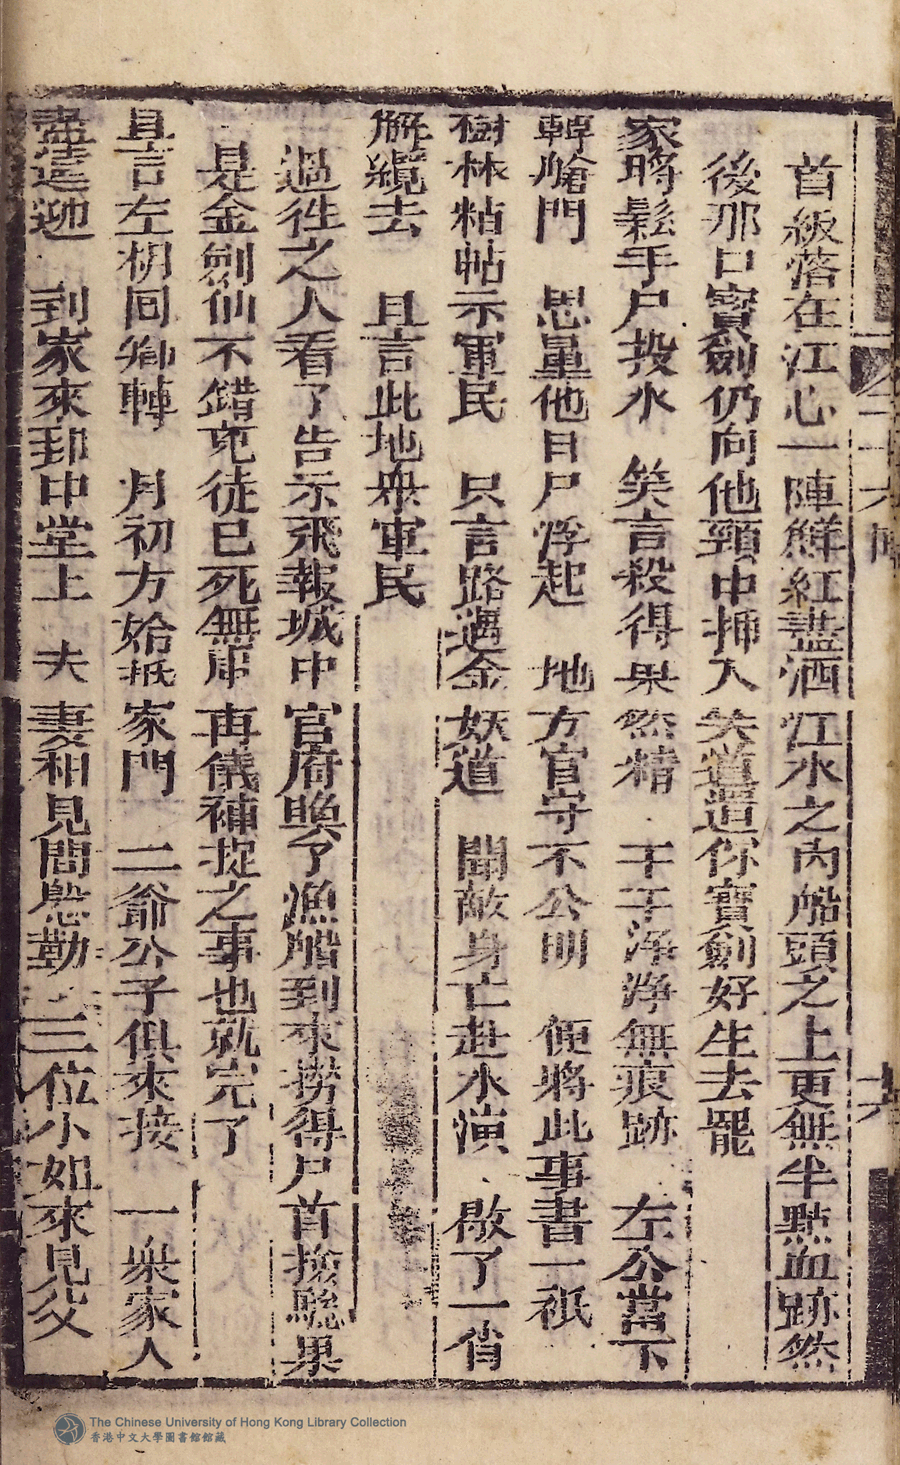 首級落在江心一陣鮮紅盡洒江水之內船頭之上更無半點血跡然
後那口寶劍仍向他頸中揷入 笑道道你寶劍好生去罷
家將鬆手尸投水 笑言殺得果然精 干干淨淨無痕跡 左公當下
轉艙門 思量他日尸浮起 地方官守不公明 便將此事書一紙
樹林粘帖示軍民 只言路遇金妖道 聞敵身亡赴水濱 啟了一角
解纜去 且言此地衆軍民
過徃之人看了告示飛報城中官府喚了漁船到來撈得尸首撿驗果
是金劍仙不錯兇徒已死無庸再儀補捉之事也就完了
且言左相回鄉轉 月初方始抵家門 二爺公子俱來接 一衆家人
盡遠迎 到家來到中堂上 夫妻相見問慇勤 三位小如來見父
二十六回
六
The Chinese University of Hong Kong Library Collection
香港中文大學圖書館館藏